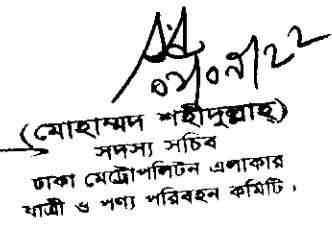 ০১/০৭/২২
(মোহাম্মদ শহীদুল্লাহ)
সদস্য সচিব
ঢাকা মেট্রোপলিটন এলাকার
যাত্রী ও পণ্য পরিবহন কমিটি।